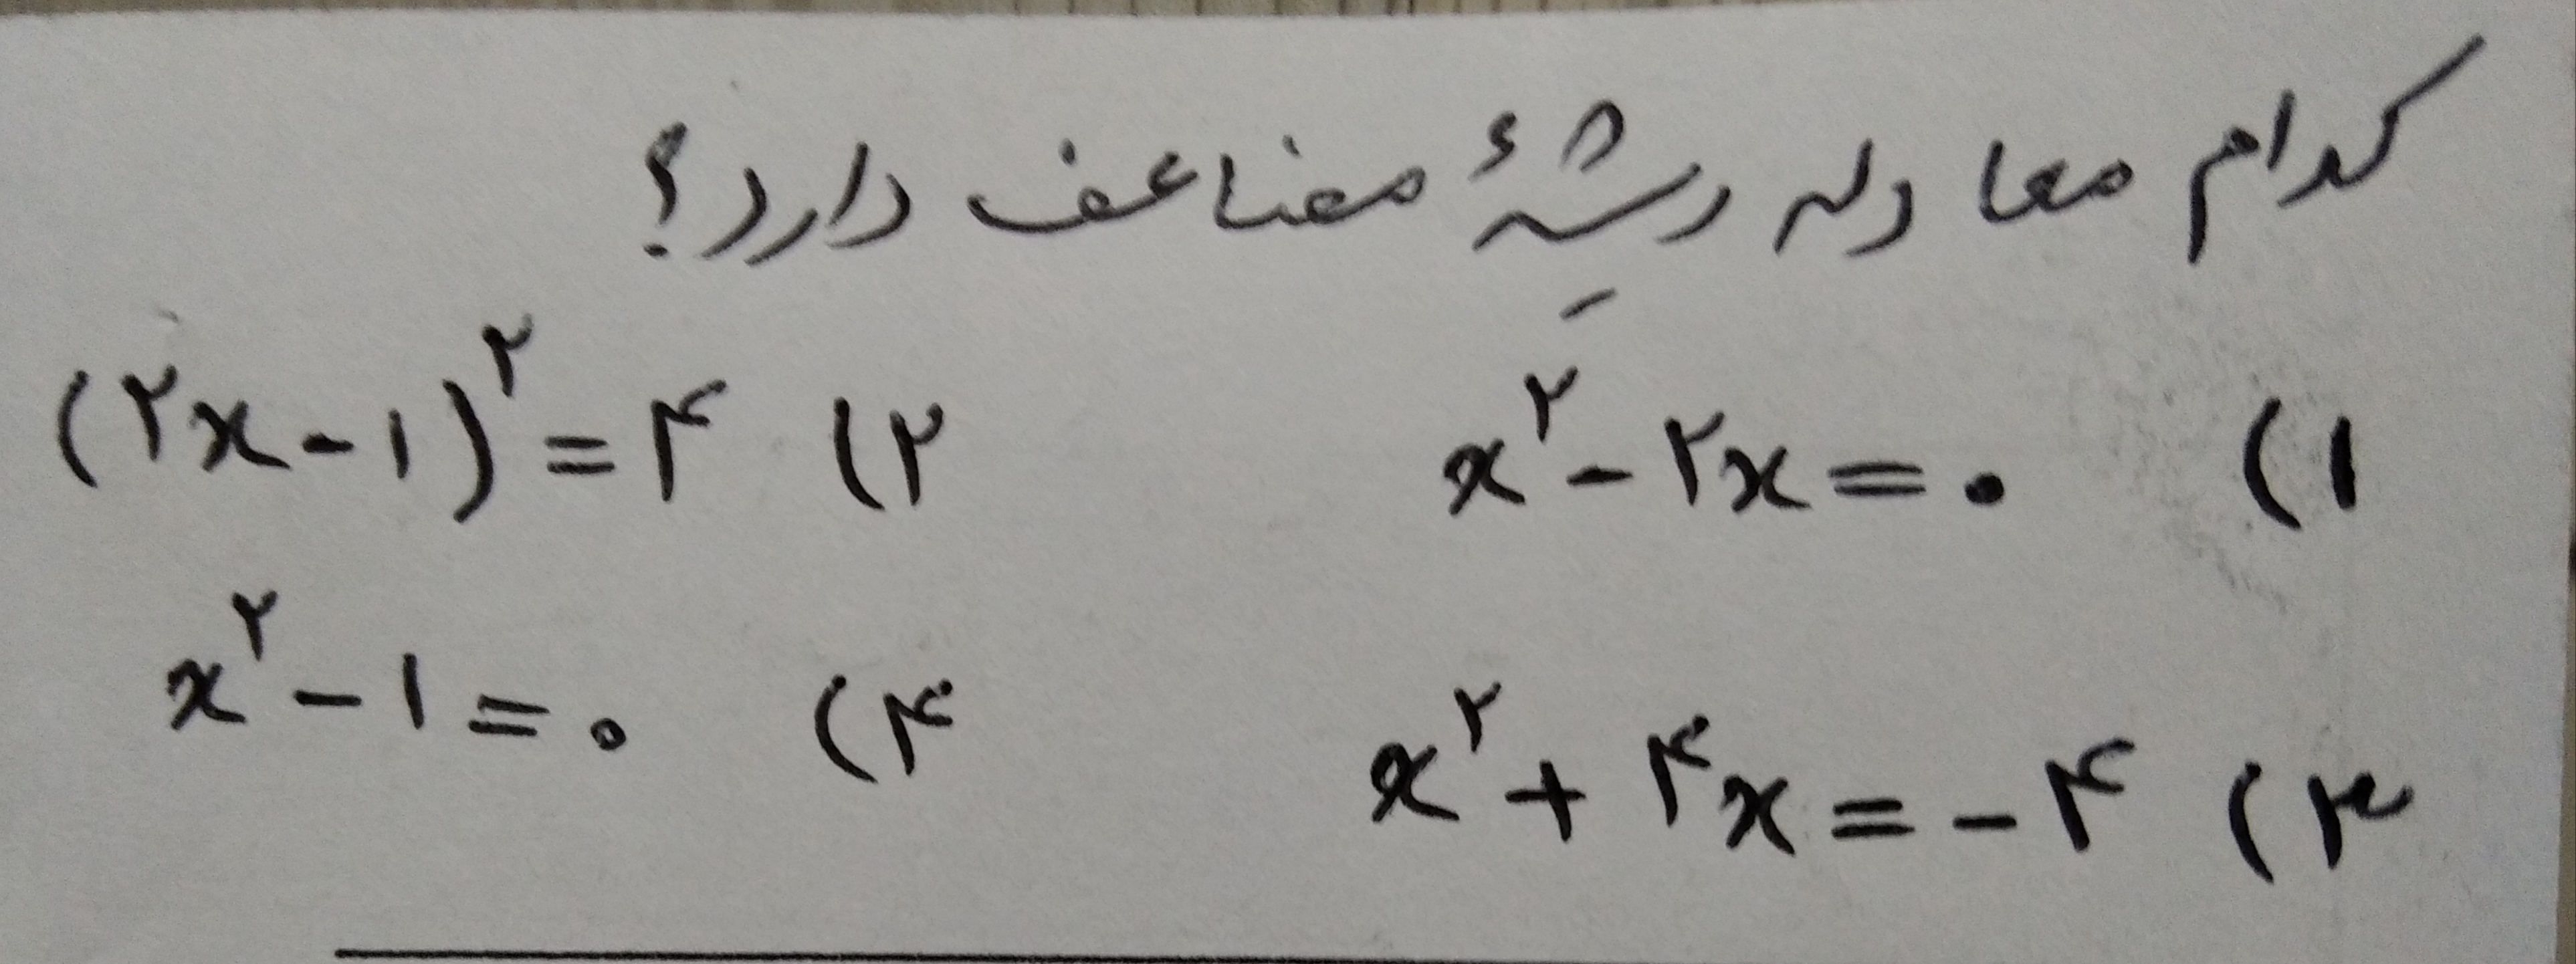 کدام معادله ریشهٔ مضاعف دارد؟
۱) x² - ۲x = ۰ ۲) (۲x - ۱)² = ۴
۳) x² + ۴x = -۴ ۴) x² - ۱ = ۰